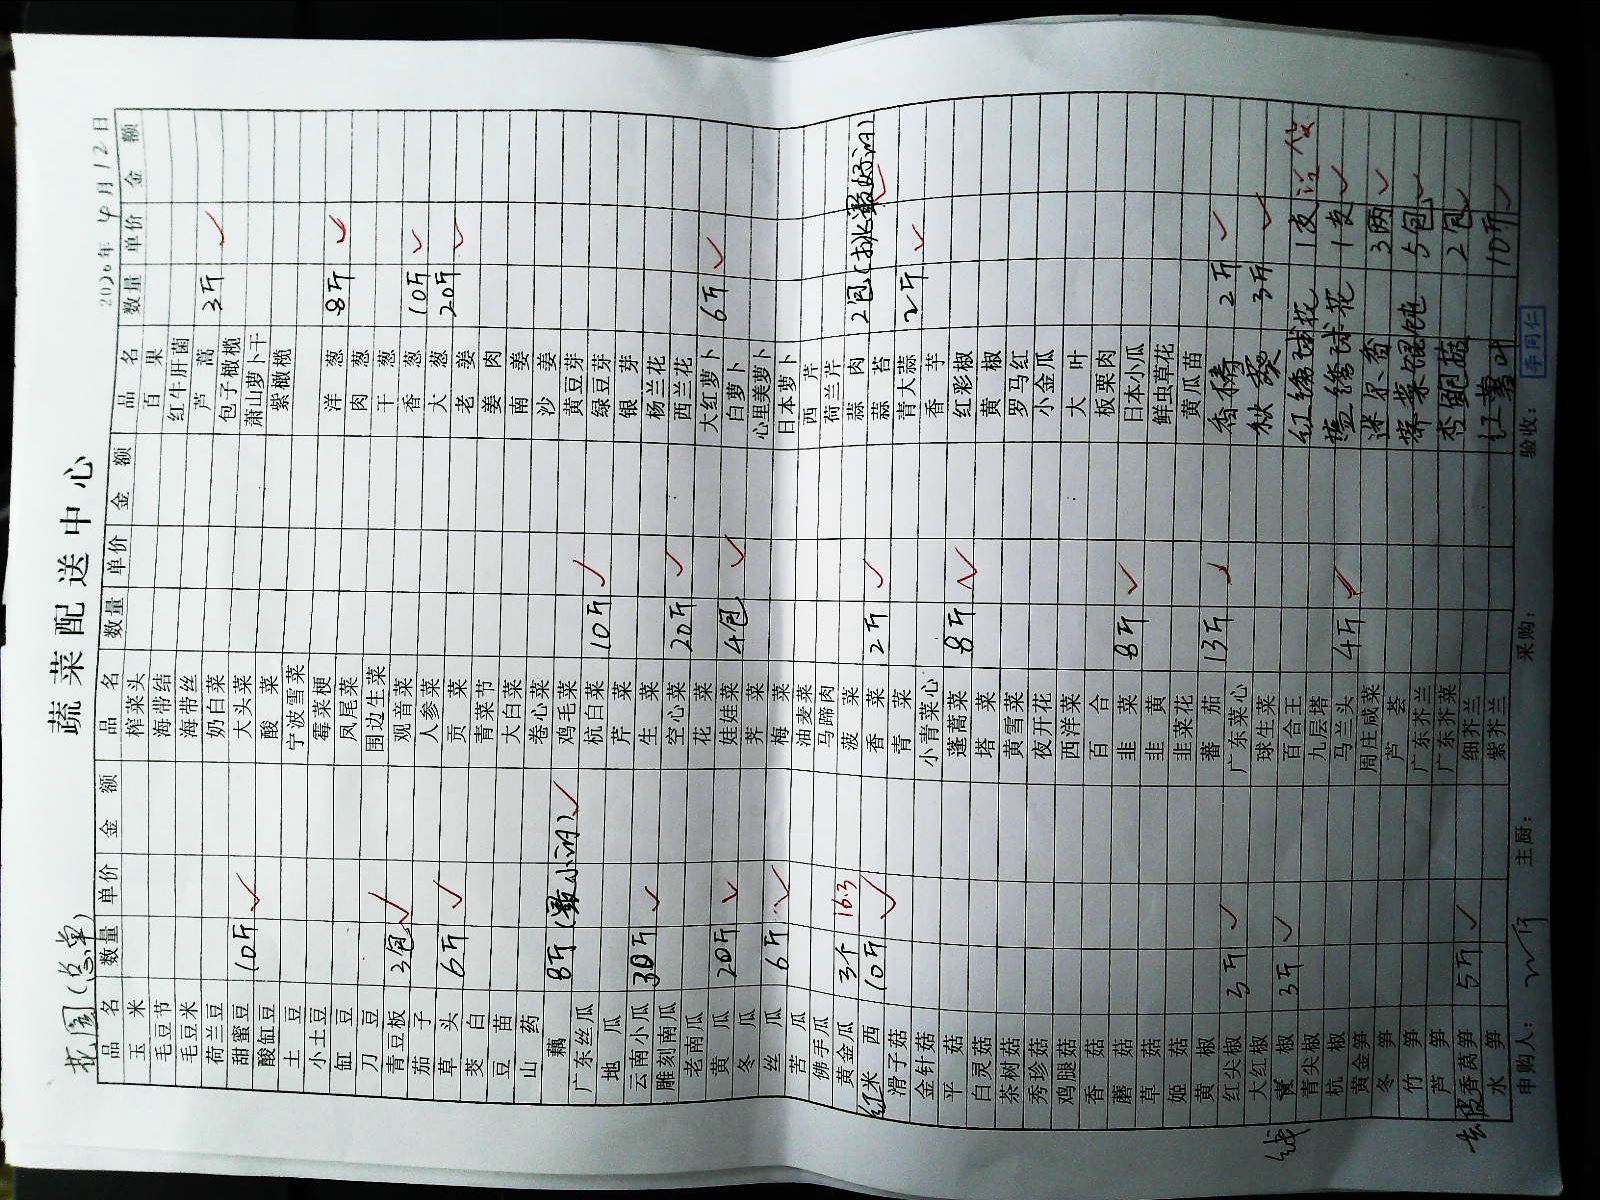 蔬菜配送中心
托园(总单)
2020年4月12日
品名 数量 单价 金额
玉米
毛豆节
毛豆米
荷兰豆
甜蜜豆 10斤
酸缸豆
土豆
小土豆
缸豆
刀豆
青豆板 3包
茄子
草头 6斤
茭白
豆苗
山药
藕 8斤(最小的)
广东丝瓜
地瓜
云南小瓜 30斤
雕刻南瓜
老南瓜
黄瓜 20斤
冬瓜
丝瓜 6斤
苦瓜
佛手瓜
黄金瓜 3个 16.3
红米西 10斤
滑子菇
金针菇
平菇
白灵菇
茶树菇
秀珍菇
鸡腿菇
香菇
蘑菇
草菇
姬菇
黄椒
红尖椒 3斤
大红椒
线椒 3斤
青尖椒
杭椒
黄金笋
冬笋
竹笋
芦笋
去皮香莴笋 5斤
水笋
品名 数量 单价 金额
榨菜头
海带结
海带丝
奶白菜
大头菜
酸菜
宁波雪菜
霉菜梗
凤尾菜
围边生菜
观音菜
人参菜
贡菜
青菜节
大白菜
卷心菜
鸡毛菜
杭白菜 10斤
芹菜
生菜
空心菜 20斤
花菜
娃娃菜 4包
荠菜
梅菜
油麦菜
马蹄肉
菠菜
香菜 2斤
青菜
小青菜心
蓬蒿菜 8斤
塔菜
黄雪菜
夜开花
西洋菜
百合
韭菜 8斤
韭黄
韭菜花
蕃茄 13斤
广东菜心
球生菜
百合王
九层塔
马兰头 4斤
周庄咸菜
芦荟
广东芥兰
广东芥菜
细芥兰
紫芥兰
品名 数量 单价 金额
百果
红牛肝菌
芦蒿 3斤
包子橄榄
萧山萝卜干
紫橄榄
洋葱 8斤
肉葱
干葱
香葱 10斤
大葱 20斤
老姜
姜肉
南姜
沙姜
黄豆芽
绿豆芽
银芽
杨兰花
西兰花
大红萝卜 6斤
白萝卜
心里美萝卜
日本萝卜
西芹
荷兰芹
蒜肉 2包(
蒜苔
青大蒜 2斤
香芋
红彩椒
黄椒
罗马红
小金瓜
大叶
板栗肉
日本小瓜
鲜虫草花
黄瓜苗
香椿 2斤
秋葵 3斤
红绣球花 1支 没
蓝绣球花 1支
迷尔香 3两
荠菜馄饨 5包
杏鲍菇 2包
红薯叶 10斤
申购人： 主厨： 采购： 验收： 李同仁